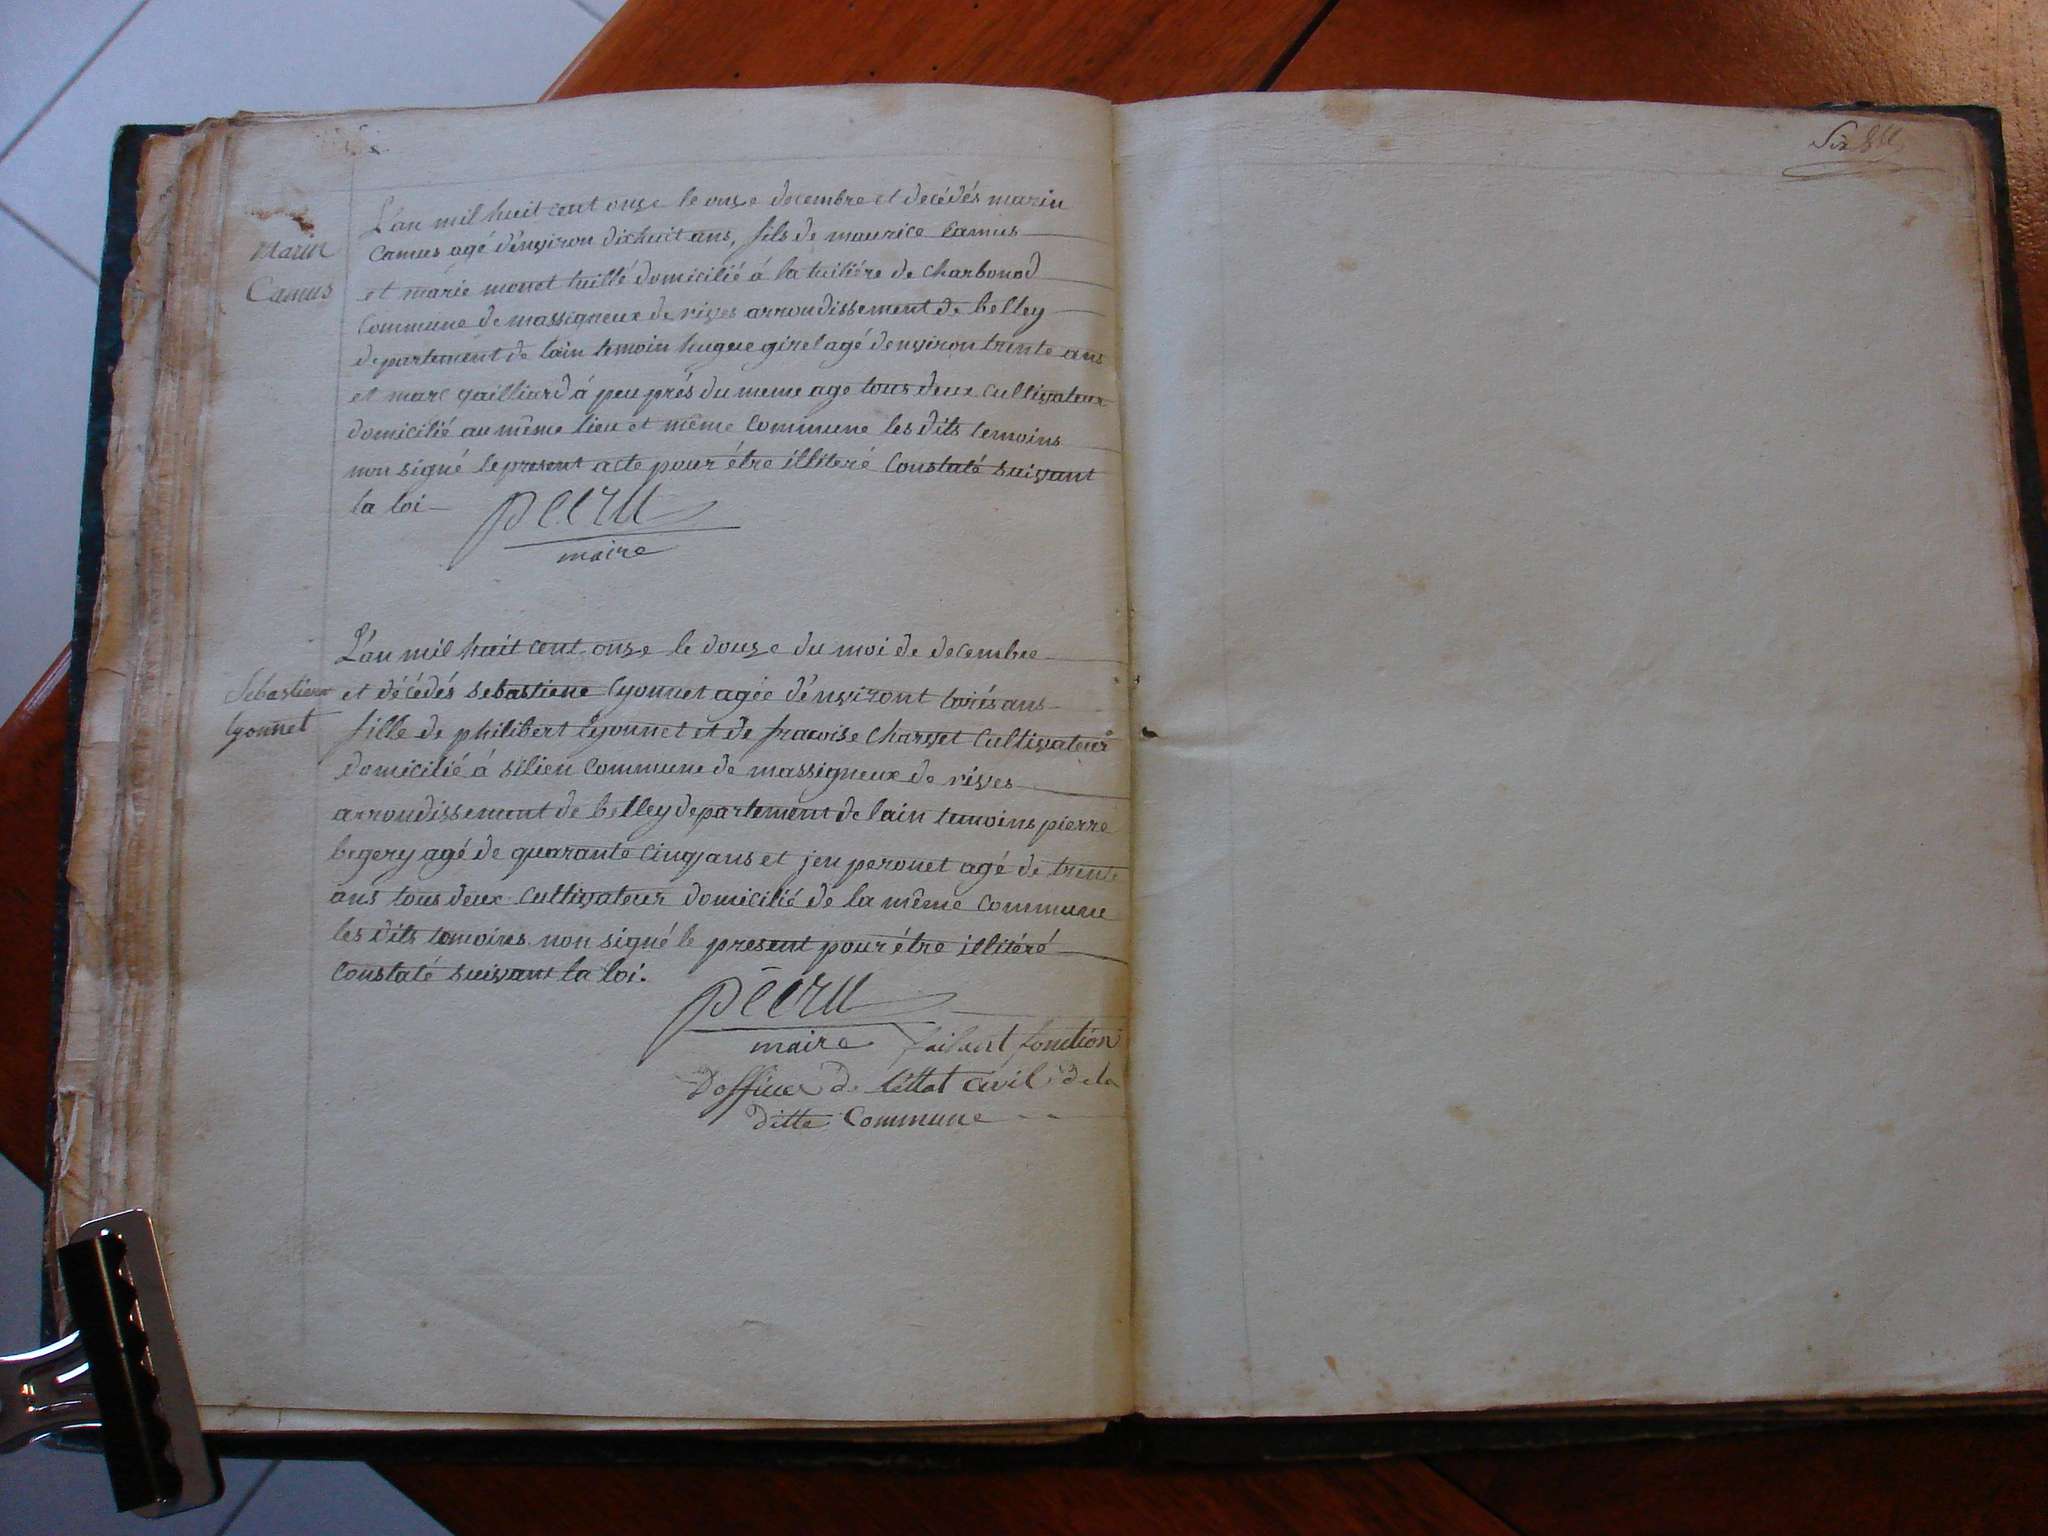 Marin
Camus
L'an mil huit cent onze le onze decembre et decédés marin
Camus agé d'environ dixhuit ans, fils de maurice Camus
et marie monet tuillé domicilié á la tuiliére de Charbonod
Commune de massigneux de rives arrondissement de belley
departement de lain temoin hugue girel agé d'environ trente ans
et marc gailliard á peu prés du meme age tous deux Cultivateur
domicilié au même lieu et même Commune les dits temoins
non signé le present acte pour étre illiteré Constaté suivant
la loi
peeru
maire
Sebastiene
lyonnet
L'an mil huit cent onze le douze du moi de decembre
et décédés sebastiene lyonnet agée d'environt troiés ans
fille de philibert lyonnet et de fracoise Charvet Cultivateur
domicilié á silien Commune de massigneux de rives
arrondissement de belley departement de lain temoins pierre
begery agé de quarante cinq ans et jen peronet agé de trente
ans tous deux Cultivateur domicilié de la même Commune
les dits temoins non signé le present pour étre illitéré
Constaté suivant la loi.
péeru
maire faisant fonction
Dofficier de lettat civil de la
ditte Commune
Six